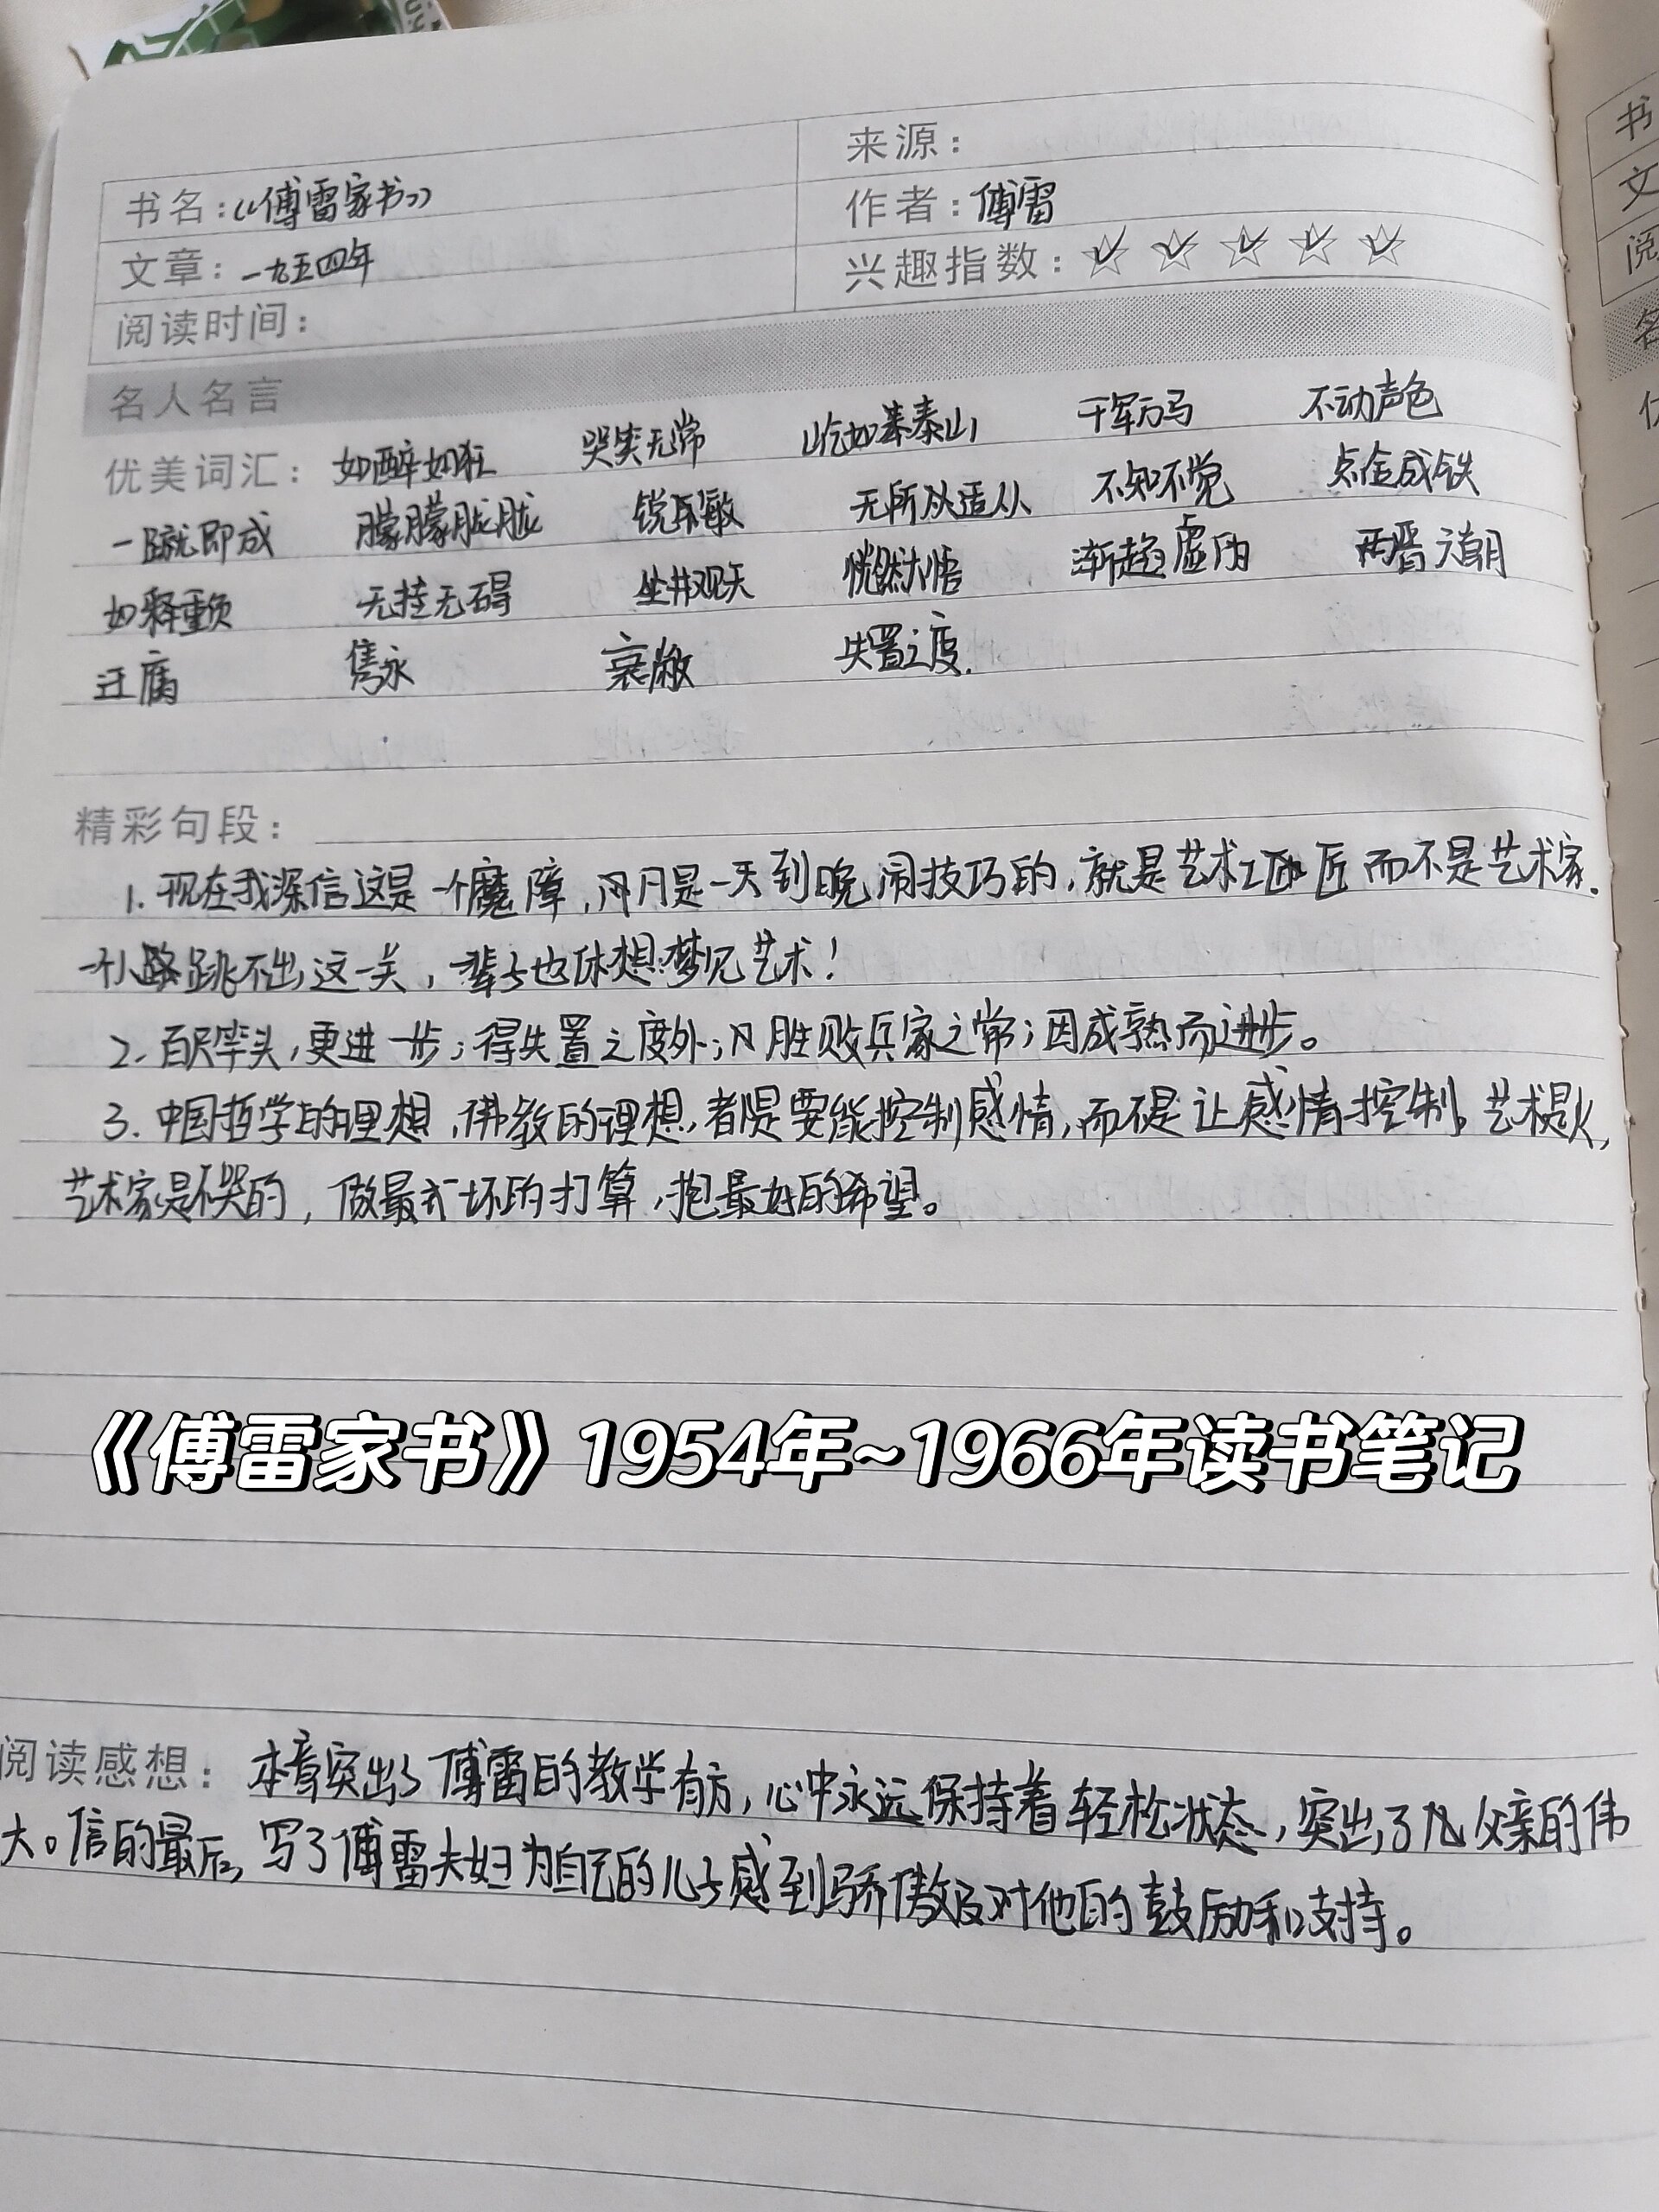 来源：
书名：《傅雷家书》
作者：傅雷
文章：一九五四年
兴趣指数：
阅读时间：
名人名言
优美词汇： 如醉如狂 哭笑无常 屹如泰山 千军万马 不动声色
一蹴即成 朦朦胧胧 锐敏 无所从适从 不知不觉 点金成铁
如释重负 无挂无碍 坐井观天 恍然大悟 渐趋虚 两晋六朝
迂腐 隽永 衰败 失置之度.
精彩句段：
1.现在我深信这是一个魔障，凡是一天到晚闹技巧的，就是艺术工匠而不是艺术家.
一个人跳不出这一关，一辈子也休想梦见艺术！
2.百尺竿头，更进一步；得失置之度外；胜败兵家之常；因成熟而进步。
3.中国哲学的理想，佛教的理想，都是要能控制感情，而不是让感情控制。艺术是火，
艺术家是不哭的，做最坏的打算，抱最好的希望。
《傅雷家书》1954年~1966年读书笔记
阅读感想： 本章突出了傅雷的教学有方，心中永远保持着轻松状态，突出了父亲的伟
大。信的最后，写了傅雷夫妇为自己的儿子感到骄傲及对他的鼓励和支持。
书
文
阅
名
优